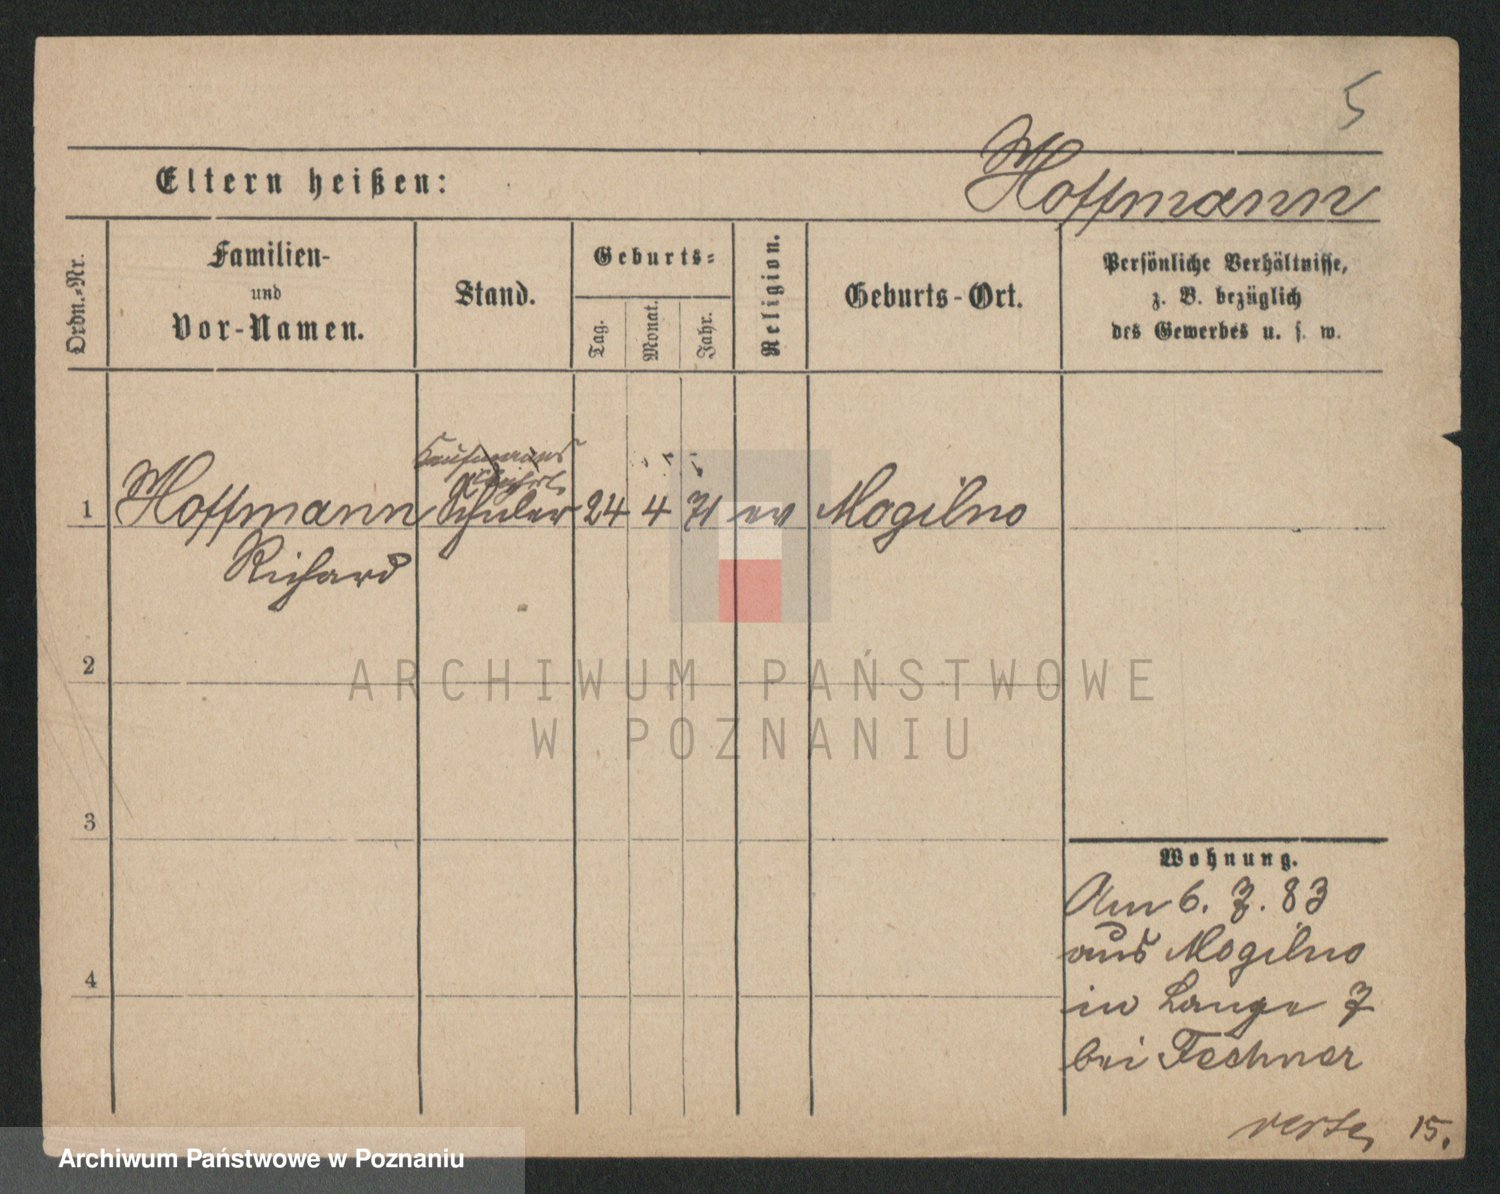 5
Eltern heißen:
Hoffmann
Ordn.-Nr.
Familien-
und
Vor-Namen.
Stand.
Geburts-
Tag.
Monat.
Jahr.
Religion.
Geburts-Ort.
Persönliche Verhältnisse,
z. B. bezüglich
des Gewerbes u. s. w.
Kaufmanns
1 Hoffmann Schüler 24 4 71 ev Mogilno
Richard
2
ARCHIWUM PAŃSTWOWE
W POZNANIU
3
Wohnung.
Am 6. 7. 83
aus Mogilno
in Lange 7
bei Fechner
4
verte, 15.
Archiwum Państwowe w Poznaniu